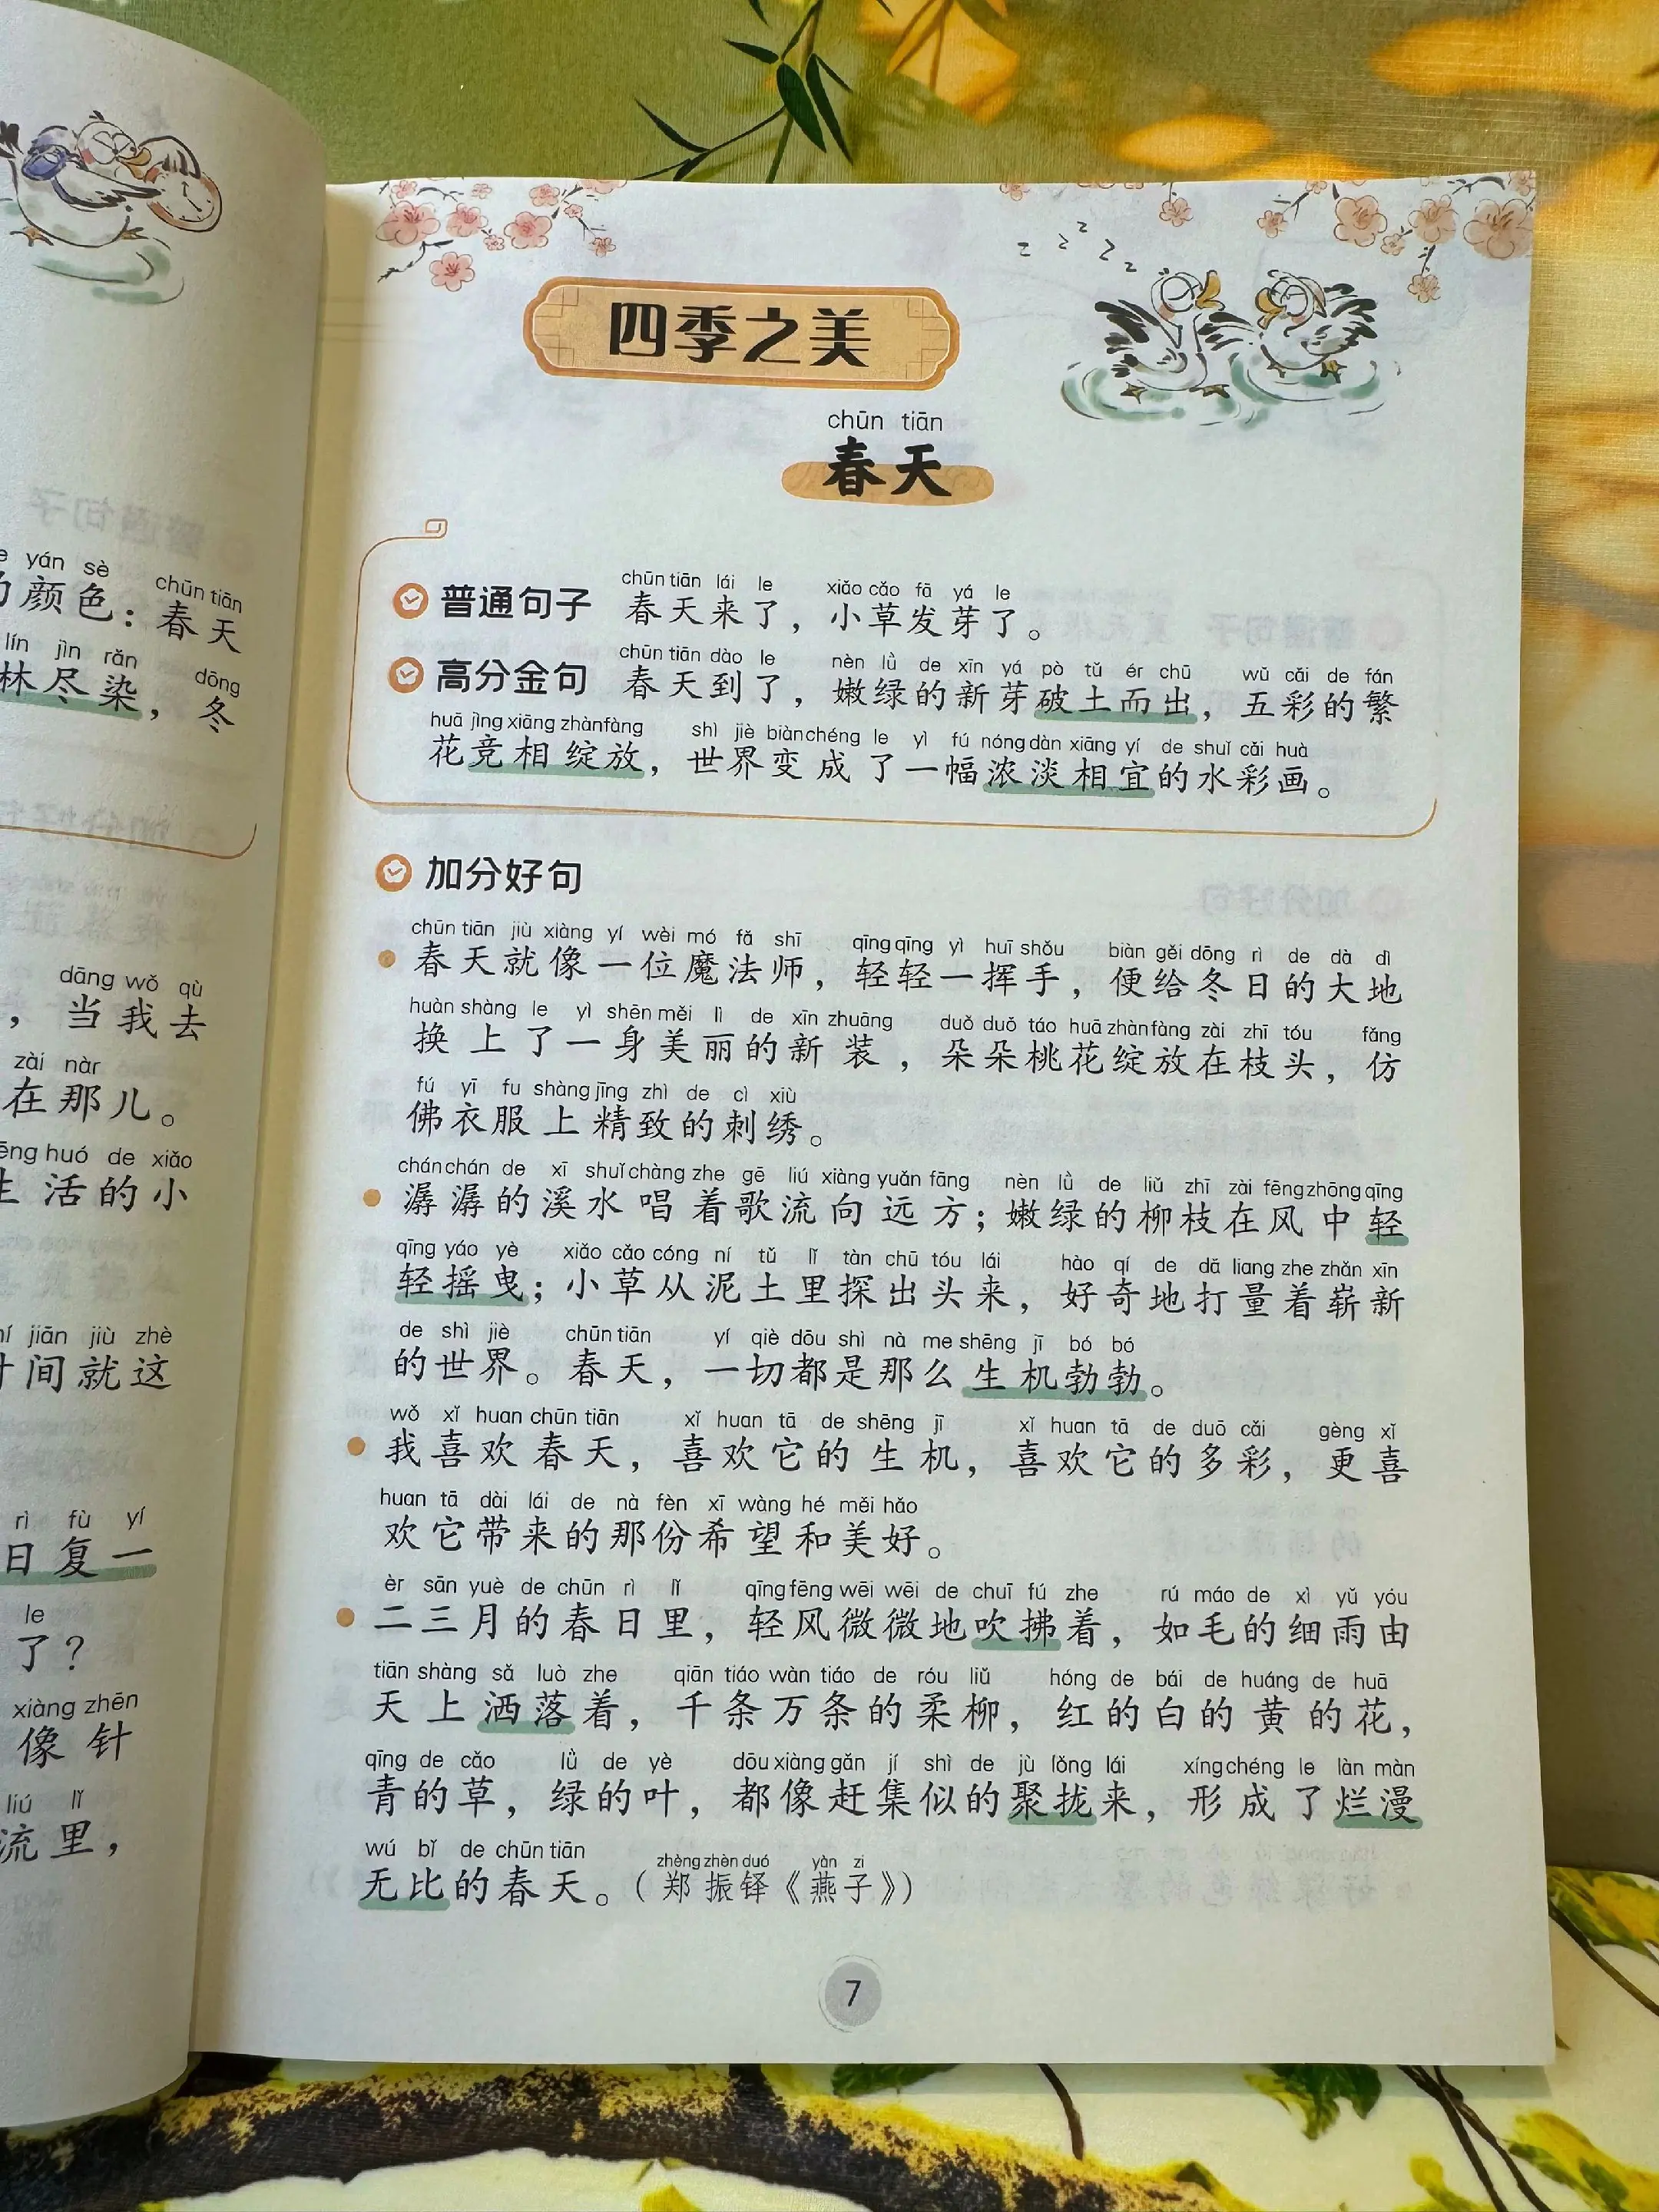 yán sè chūn tiān
颜色：春天
lín jìn rǎn dōng
林尽染，冬
dāng wǒ qù
，当我去
zài nàr
在那儿。
huó de xiǎo
活的小
jiān jiù zhè
间就这
rì fù yí
日复一
le
了？
xiàng zhēn
像针
liú lǐ
流里，
四季之美
chūn tiān
春天
chūn tiān lái le xiǎo cǎo fā yá le
普通句子 春天来了，小草发芽了。
chūn tiān dào le nèn lǜ de xīn yá pò tǔ ér chū wǔ cǎi de fán
高分金句 春天到了，嫩绿的新芽破土而出，五彩的繁
huā jìng xiāng zhàn fàng shì jiè biàn chéng le yì fú nóng dàn xiāng yí de shuǐ cǎi huà
花竞相绽放，世界变成了一幅浓淡相宜的水彩画。
加分好句
chūn tiān jiù xiàng yí wèi mó fǎ shī qīng qīng yì huī shǒu biàn gěi dōng rì de dà dì
春天就像一位魔法师，轻轻一挥手，便给冬日的大地
huàn shàng le yì shēn měi lì de xīn zhuāng duǒ duǒ táo huā zhàn fàng zài zhī tóu fǎng
换上了一身美丽的新装，朵朵桃花绽放在枝头，仿
fú yī fu shàng jīng zhì de cì xiù
佛衣服上精致的刺绣。
chán chán de xī shuǐ chàng zhe gē liú xiàng yuǎn fāng nèn lǜ de liǔ zhī zài fēng zhōng qīng
潺潺的溪水唱着歌流向远方；嫩绿的柳枝在风中轻
qīng yáo yè xiǎo cǎo cóng ní tǔ lǐ tàn chū tóu lái hào qí de dǎ liang zhe zhǎn xīn
轻摇曳；小草从泥土里探出头来，好奇地打量着崭新
de shì jiè chūn tiān yí qiè dōu shì nà me shēng jī bó bó
的世界。春天，一切都是那么生机勃勃。
wǒ xǐ huan chūn tiān xǐ huan tā de shēng jī xǐ huan tā de duō cǎi gèng xǐ
我喜欢春天，喜欢它的生机，喜欢它的多彩，更喜
huan tā dài lái de nà fèn xī wàng hé měi hǎo
欢它带来的那份希望和美好。
èr sān yuè de chūn rì lǐ qīng fēng wēi wēi de chuī fú zhe rú máo de xì yǔ yóu
二三月的春日里，轻风微微地吹拂着，如毛的细雨由
tiān shàng sǎ luò zhe qiān tiáo wàn tiáo de róu liǔ hóng de bái de huáng de huā
天上洒落着，千条万条的柔柳，红的白的黄的花，
qīng de cǎo lǜ de yè dōu xiàng gǎn jí shì de jù lǒng lái xíng chéng le làn màn
青的草，绿的叶，都像赶集似的聚拢来，形成了烂漫
wú bǐ de chūn tiān zhèng zhèn duó yàn zi
无比的春天。（郑振铎《燕子》）
7